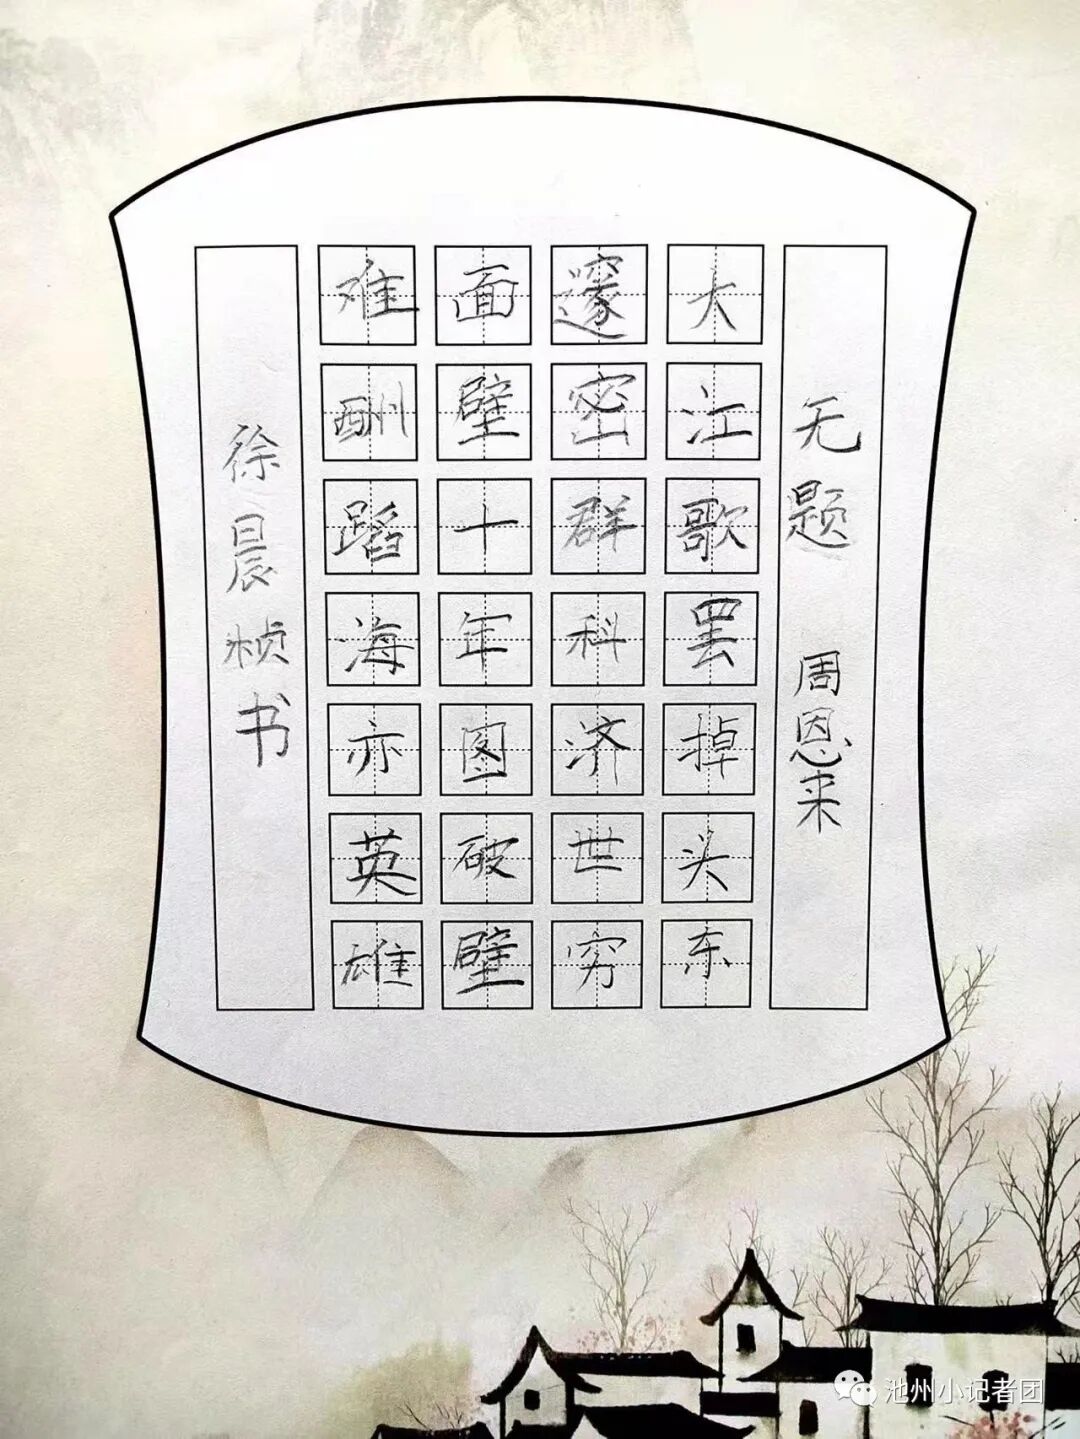 无题 周恩来
大江歌罢掉头东
邃密群科济世穷
面壁十年图破壁
难酬蹈海亦英雄
徐晨桢书
池州小记者团